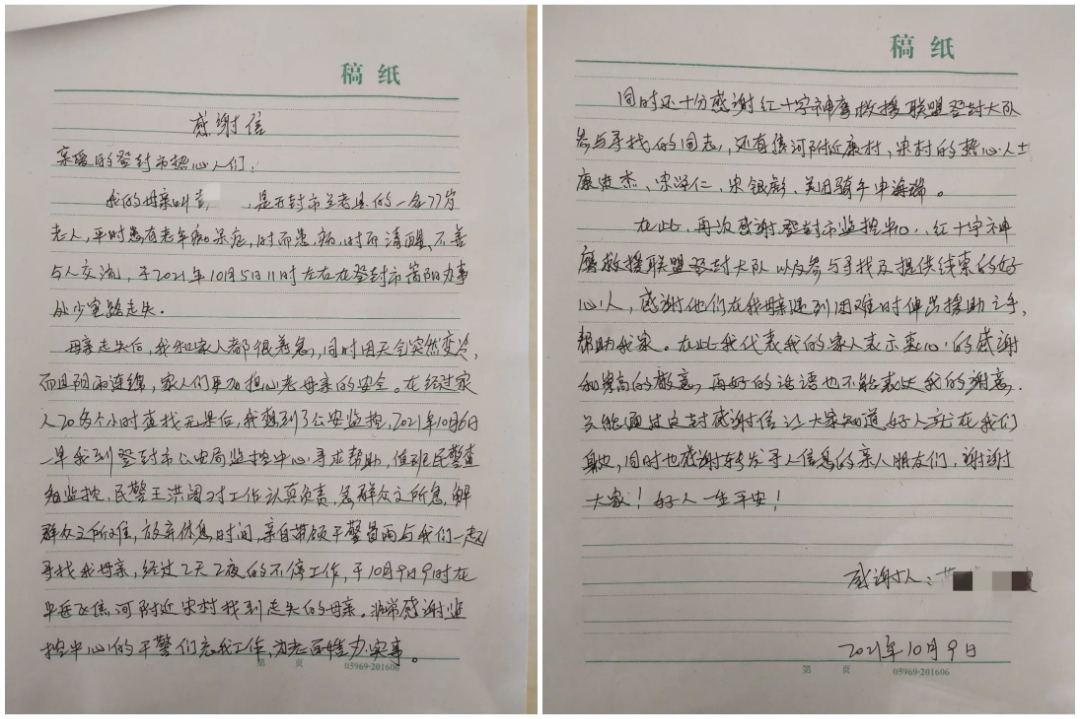 稿纸
感谢信
亲爱的登封市热心人们：
我的母亲叫　　，是开封市兰考县的一名77岁
老人，平时患有老年痴呆症，时而患病，时而清醒、不善
与人交流，于2021年10月5日11时左右在登封市嵩阳办事
处少室路走失。
母亲走失后，我和家人都很着急，同时因天气突然变冷，
而且阴雨连绵，家人们更加担心老母亲的安全。在经过家
人20多个小时查找无果后，我想到了公安监控，2021年10月6日
一早我到登封市公安局监控中心寻求帮助，值班民警查
看监控，民警王洪阁对工作认真负责，急群众之所急，解
群众之所难，放弃休息时间，亲自带领干警员两与我们一起
寻找我母亲，经过2天2夜的不停工作，于10月9日9时在
焦河附近宋村找到走失的母亲。非常感谢监
控中心的干警们忘我工作，为老百姓办实事。
第　页　05969·201606
稿纸
同时还十分感谢红十字神鹰救援联盟登封大队
参与寻找的同志，还有焦河附近康村，宋村的热心人士
康史杰、宋泽仁、宋银彪，美团骑手申海瑞。
在此，再次感谢登封市监控中心，红十字神
鹰救援联盟登封大队以及参与寻找及提供线索的好
心人，感谢他们在我母亲遇到困难时伸出援助之手，
帮助我家。在此我代表我的家人表示衷心的感谢
和崇高的敬意，再好的话语也不能表达我的谢意，
只能通过这封感谢信让大家知道好人就在我们
身边，同时也感谢转发寻人信息的亲人朋友们，谢谢
大家！好人一生平安！
感谢人：
2021年10月9日
第　页　05969·201606